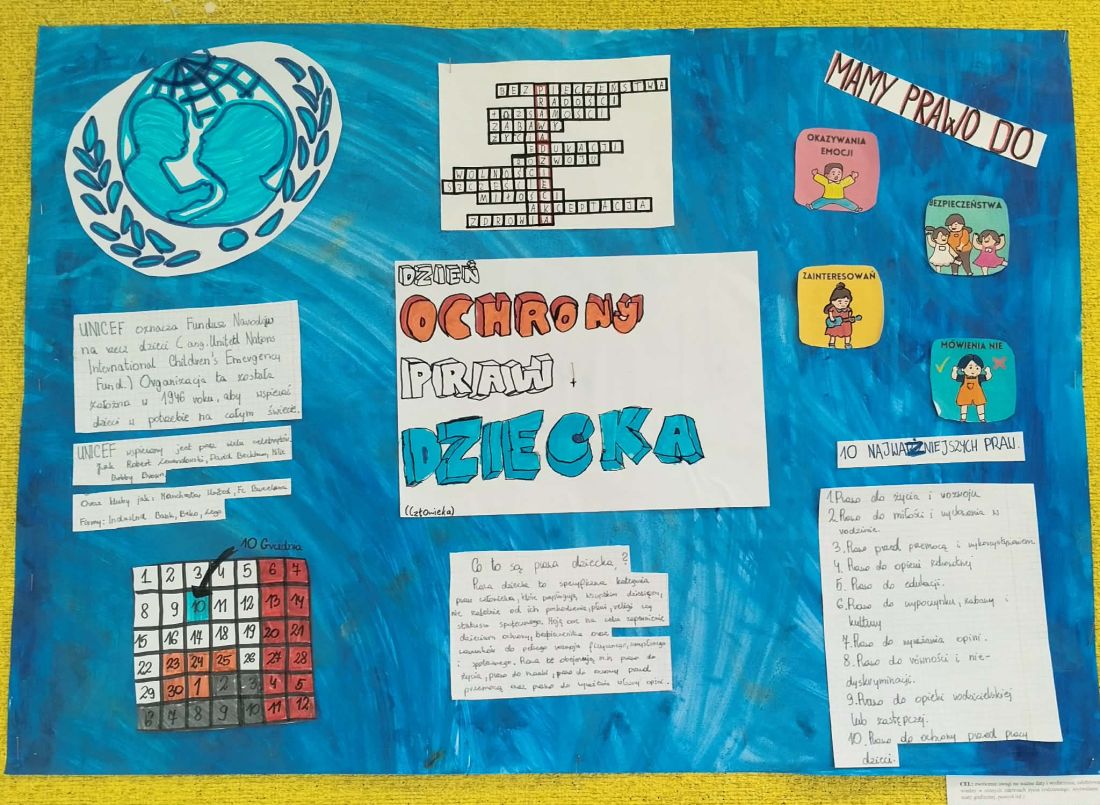 MAMY PRAWO DO
OKAZYWANIA
EMOCJI
BEZPIECZEŃSTWA
ZAINTERESOWAŃ
MÓWIENIA NIE
BEZPIECZEŃSTWA
RADOŚCI
TOŻSAMOŚCI
ZABAWY
ŻYCIA
EDUKACJI
ROZWOJU
SZCZĘŚCIA
MIŁOŚCI
AKCEPTACJA
ZDROWIA
DZIEŃ
OCHRONY
PRAW
DZIECKA
(Człowieka)
UNICEF oznacza Fundusz Narodów
na rzecz dzieci (ang. United Nations
International Children's Emergency
Fund.) Organizacja ta została
założona w 1946 roku, aby wspierać
dzieci w potrzebie na całym świecie.
UNICEF wspierany jest przez wielu celebrytów
jak Robert Lewandowski, David Beckham, Milie
Bobby Brown
Oraz kluby jak: Manchester United, Fc Barcelona
Firmy: Beko, Lego
10 Grudnia
1 2 3 4 5 6 7
8 9 10 11 12 13 14
15 16 17 18 19 20 21
22 23 24 25 26 27 28
29 30 1 2 3 4 5
6 7 8 9 10 11 12
Co to są prawa dziecka?
Prawa dziecka to specyficzna kategoria
praw człowieka, które przysługują wszystkim dzieciom,
nie zależnie od ich pochodzenia, płci, religi czy
statusu społecznego. Mają one na celu zapewnienie
dzieciom ochrony, bezpieczeństwa oraz
warunków do pełnego rozwoju fizycznego,
i społecznego. Prawa te obejmują m.in prawo do
życia, prawo do nauki, prawo do ochrony przed
przemocą oraz prawo do wyrażania własnej opini.
10 NAJWAŻNIEJSZYCH PRAW.
1. Prawo do życia i rozwoju
2. Prawo do miłości i wychowania w
rodzinie.
3. Prawo przed przemocą i wykorzystywaniem
4. Prawo do opieki zdrowotnej
5. Prawo do edukacji.
6. Prawo do wypoczynku, zabawy i
kultury
7. Prawo do wyrażania opini.
8. Prawo do równości i nie-
dyskryminacji.
9. Prawo do opieki rodzicielskiej
lub zastępczej.
10. Prawo do ochrony przed pracą
dzieci.